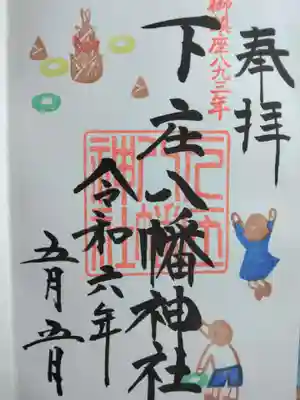 奉拝
御鎮座八九三年
下庄八幡神社
令和六年
五月五日